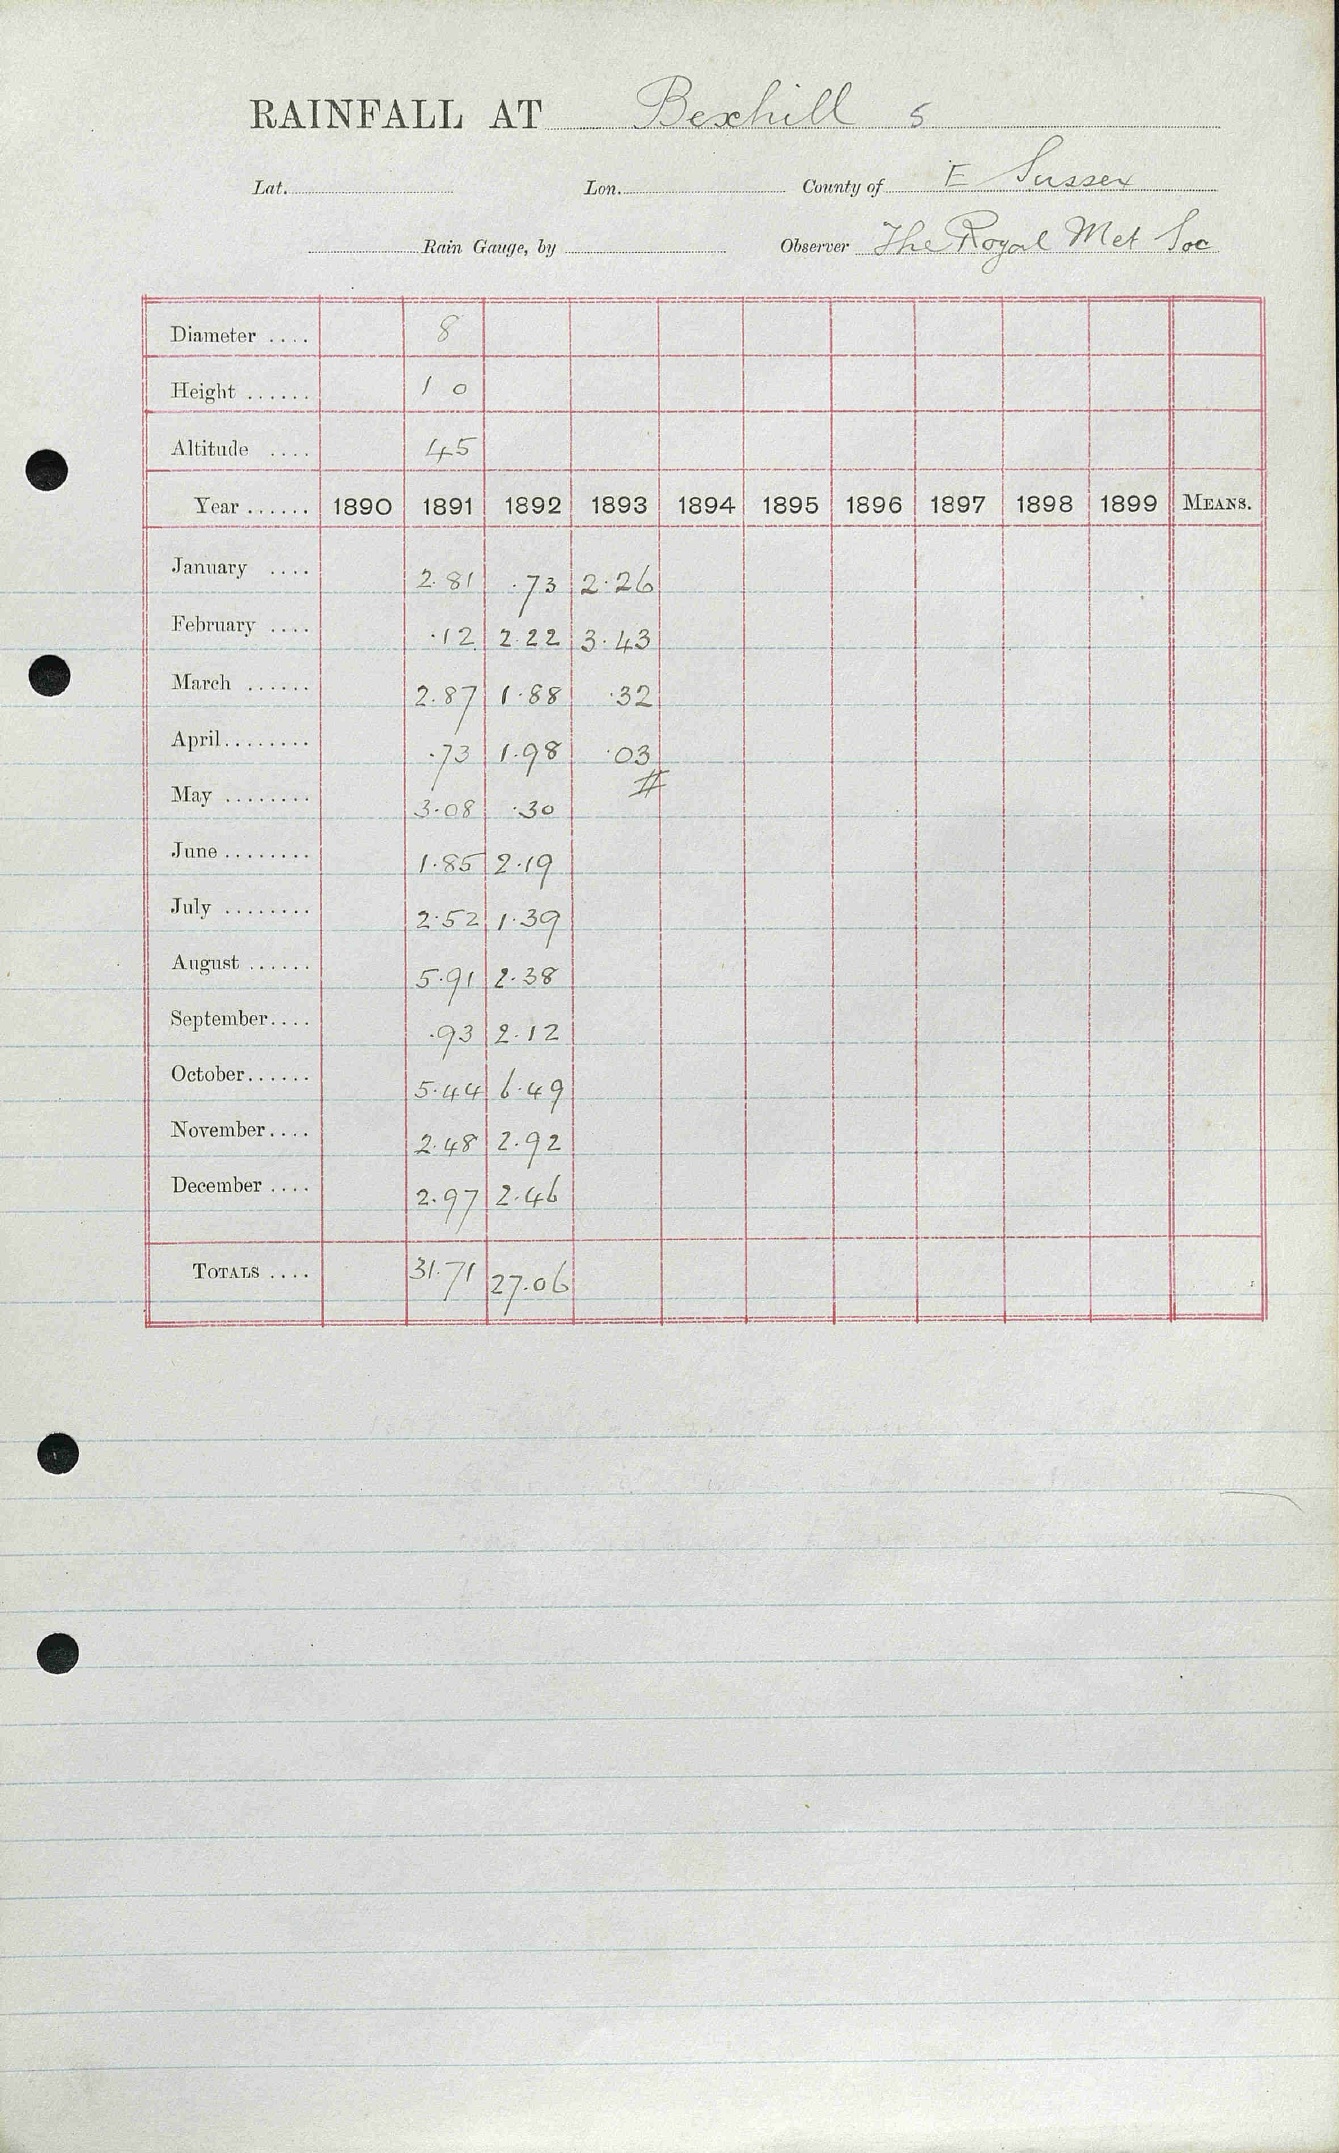 RAINFALL AT Bexhill 5
Lat. Lon. County of E Sussex
Rain Gauge, by Observer The Royal Met Soc
Diameter .... 8
Height ...... 1 0
Altitude .... 45
Year ...... 1890 1891 1892 1893 1894 1895 1896 1897 1898 1899 MEANS.
January .... 2.81 .73 2.26
February .... .12 2.22 3.43
March ...... 2.87 1.88 .32
April........ .73 1.98 .03
May ........ 3.08 .30 #
June ........ 1.85 2.19
July ........ 2.52 1.39
August ...... 5.91 2.38
September.... .93 2.12
October...... 5.44 6.49
November.... 2.48 2.92
December .... 2.97 2.46
TOTALS .... 31.71 27.06